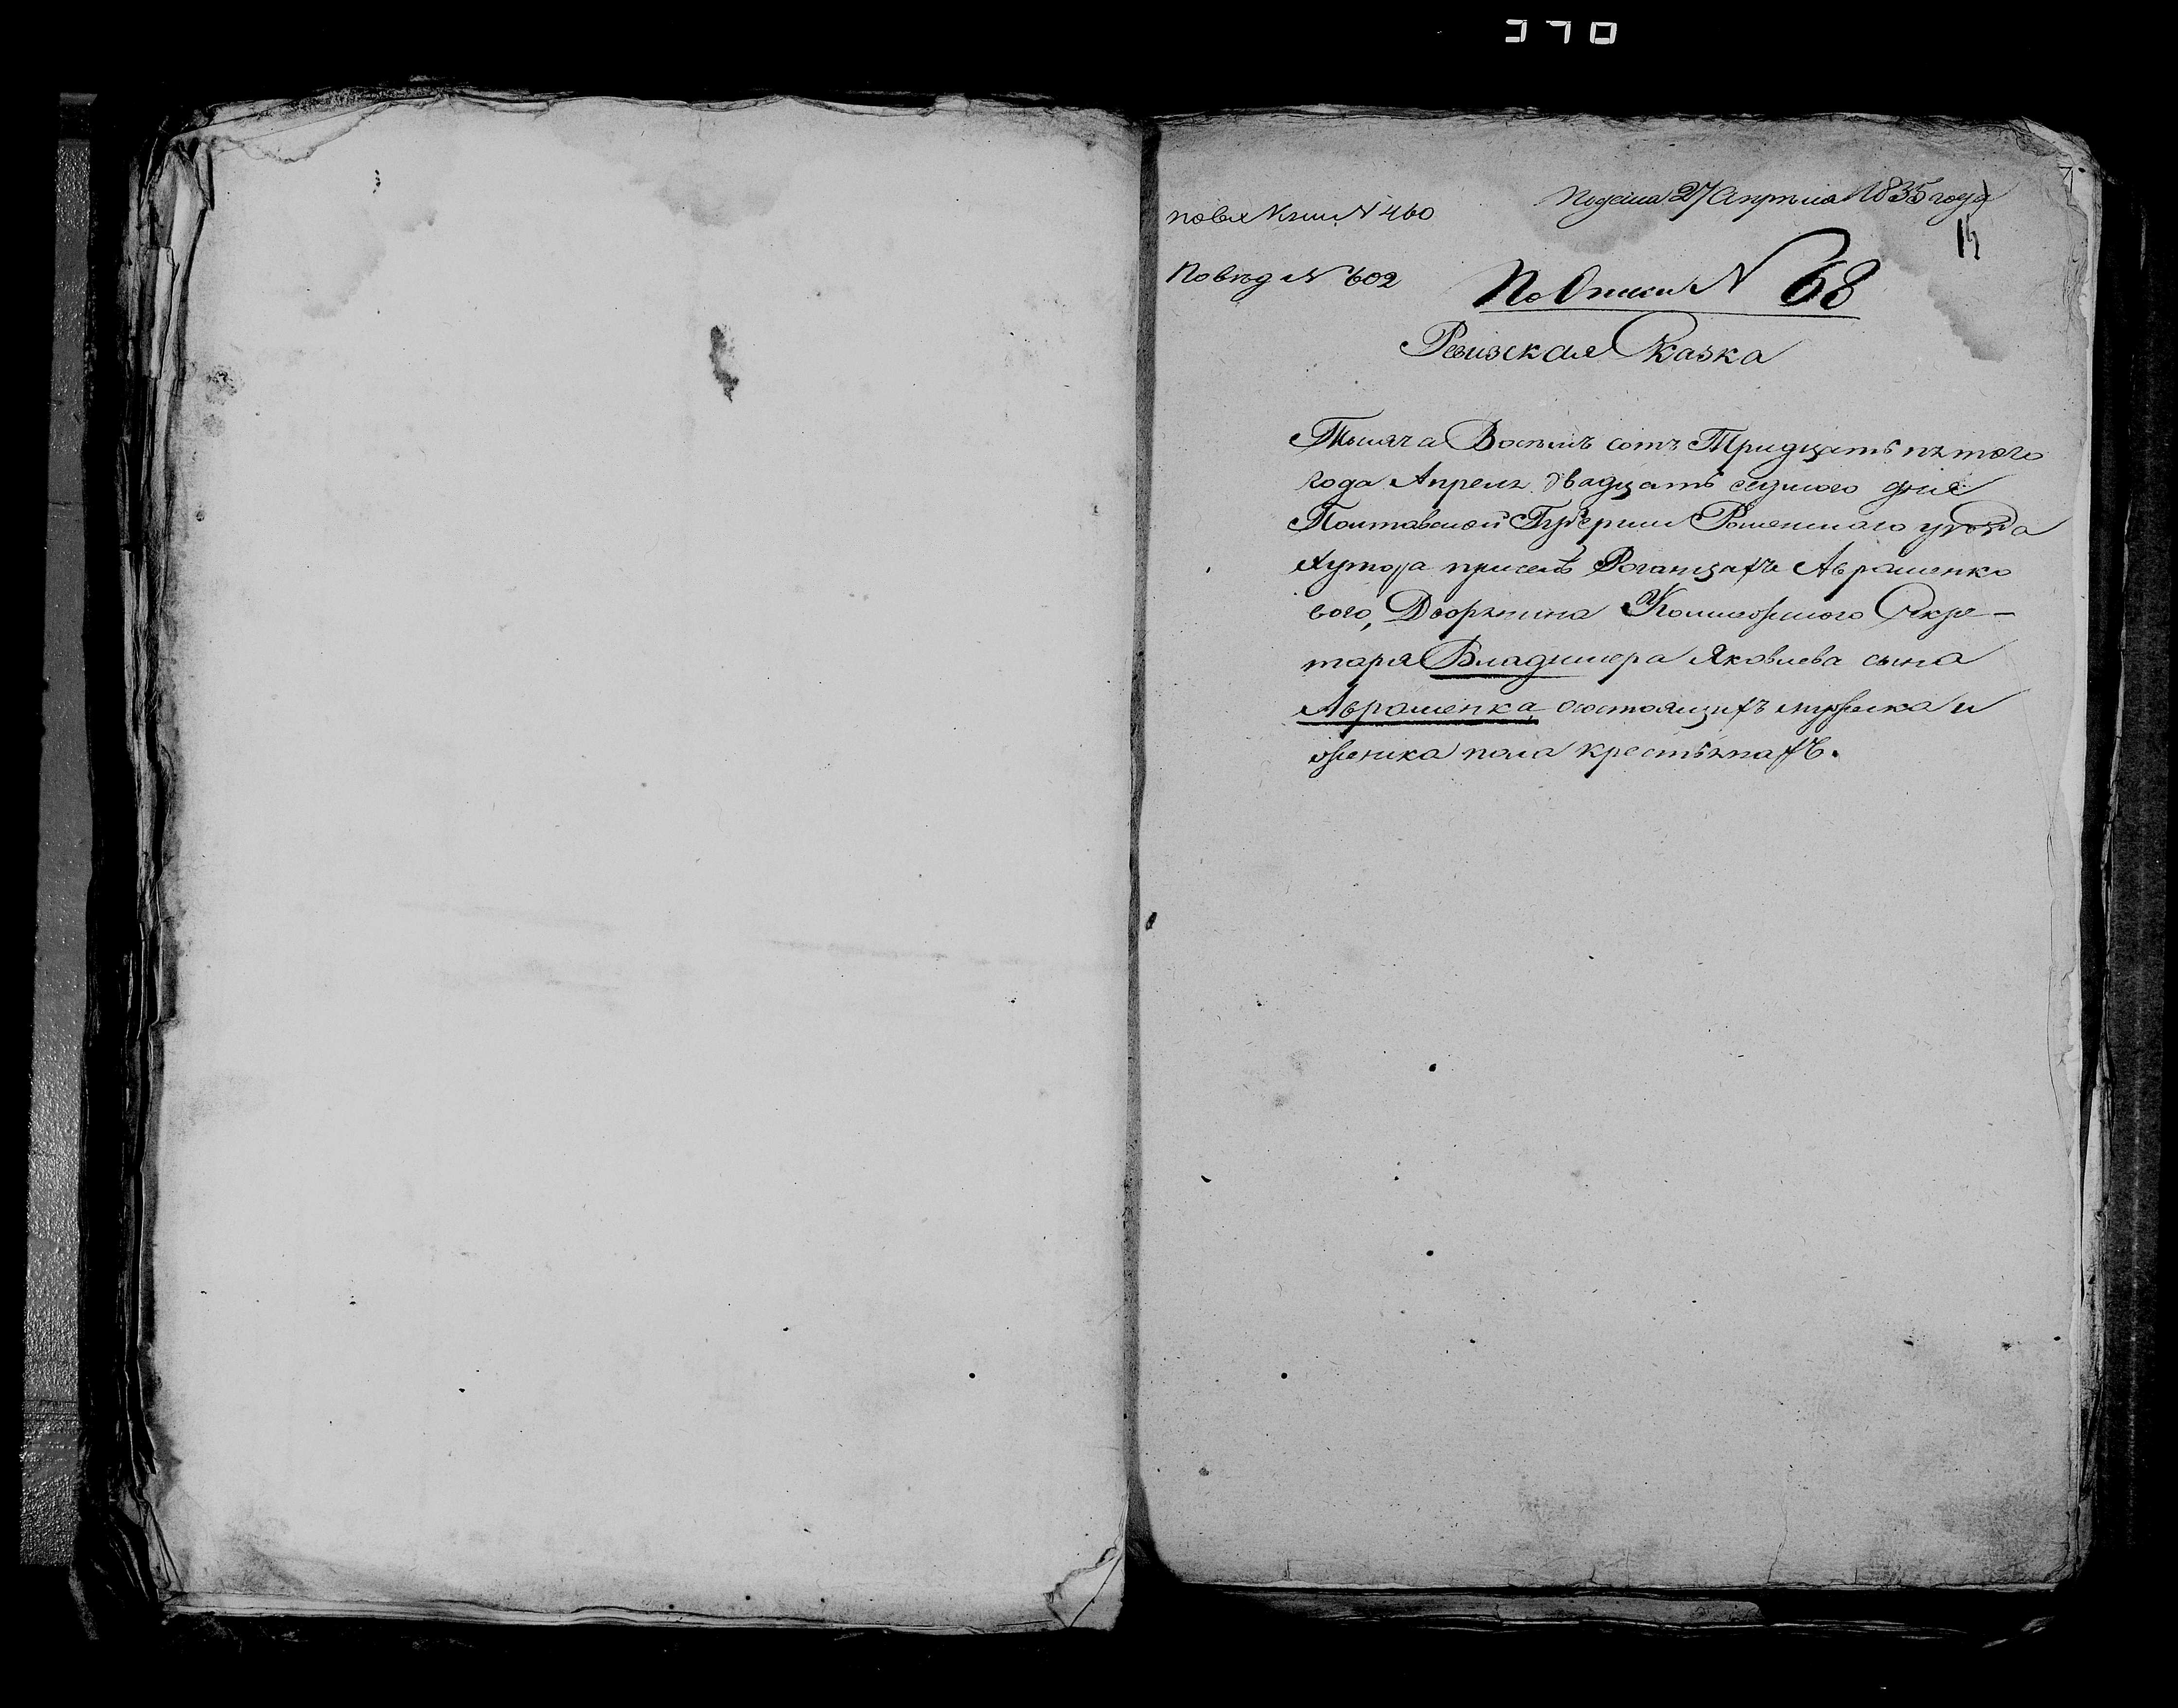 370
Подана 27 Апреля 1835 года
по вх книг N 460
По вѣд N 602
По Описи N 68
Ревизская Сказка
Тысяча Восемь сотъ Тридцать пятого
года Апреля двадцать седмого дня
Полтавской Губернии Роменского уезда
Хутора при селѣ Роганцахъ Авраменко
вого, Дворянина Коллежского Секре-
таря Владимера Яковлева сына
Авраменка, состоящихъ мужеска и
женска пола крестьянахъ.